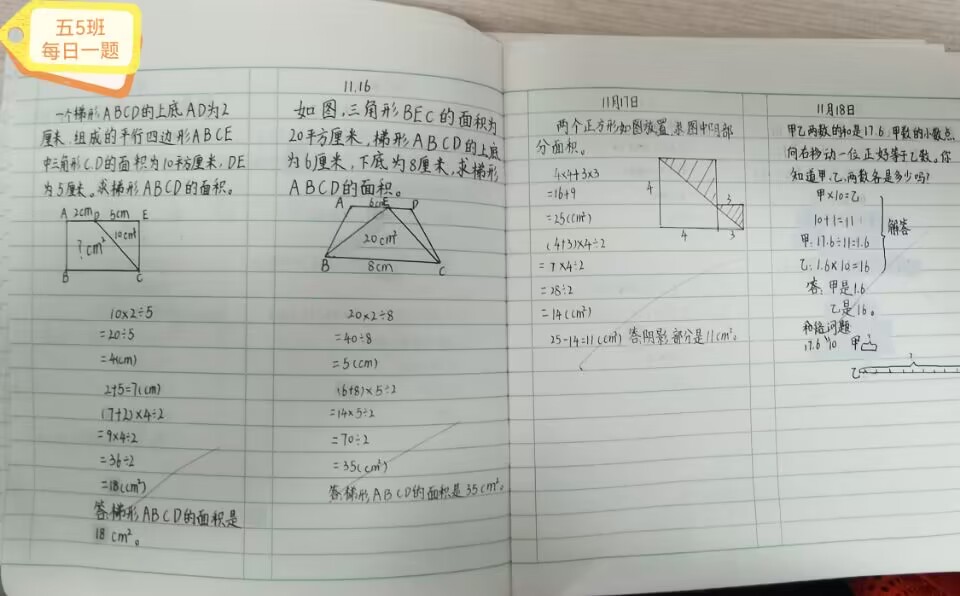 五5班
每日一题
一个梯形ABCD的上底AD为2
厘米,组成的平行四边形ABCE
中三角形C.D的面积为10平方厘米,DE
为5厘米。求梯形ABCD的面积。
A 2cm D 5cm E
10cm²
?cm²
B C
10×2÷5
=20÷5
=4(cm)
2+5=7(cm)
(7+2)×4÷2
=9×4÷2
=36÷2
=18(cm²)
答:梯形ABCD的面积是
18 cm²。
11.16
如图,三角形BEC的面积为
20平方厘米,梯形ABCD的上底
为6厘米,下底为8厘米,求梯形
ABCD的面积。
A 6cm E D
20cm²
B 8cm C
20×2÷8
=40÷8
=5(cm)
(6+8)×5÷2
=14×5÷2
=70÷2
=35(cm²)
答:梯形ABCD的面积是35cm²。
11月17日
两个正方形如图放置,求图中阴部
分面积。
4×4+3×3
=16+9
=25(cm²)
(4+3)×4÷2
=7×4÷2
=28÷2
=14(cm²)
25-14=11(cm²) 答:阴影部分是11cm²。
4
3
4 3
11月18日
甲乙两数的和是17.6,甲数的小数点
向右移动一位,正好等于乙数。你
知道甲、乙,两数各是多少吗?
甲×10=乙
10+1=11
甲:17.6÷11=1.6
乙:1.6×10=16
解答
答:甲是1.6
乙是16。
和倍问题
17.6 10 甲 ?
?
乙